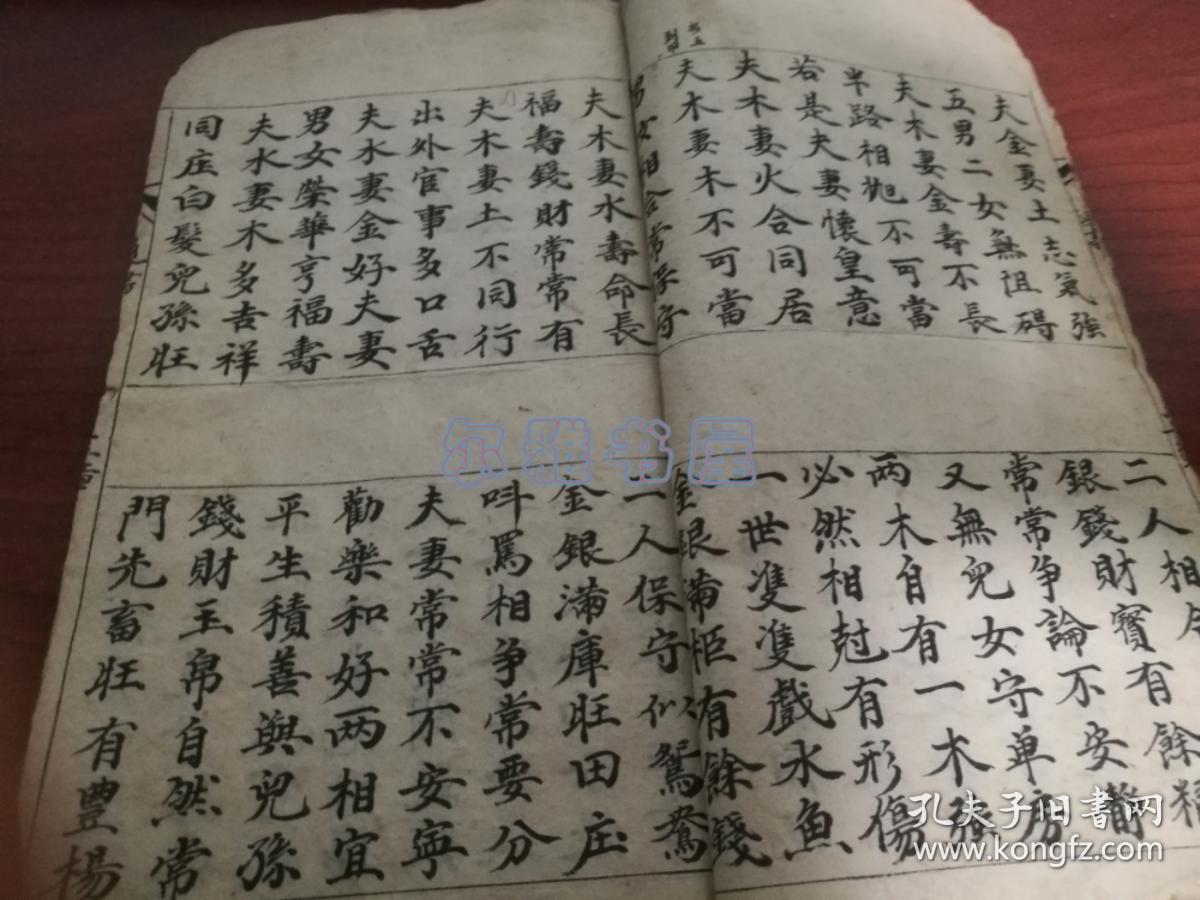 夫金妻土志氣強
五男二女無阻碍
夫木妻金壽不長
半路相尅不可當
若是夫妻懷皇意
夫木妻火合同居
夫木妻木不可當
男女相合常保守
夫木妻水壽命長
福壽錢財常常有
夫木妻土不同行
出外官事多口舌
夫水妻金好夫妻
男女榮華亨福壽
夫水妻木多吉祥
同庄白髮兒孫旺
二人相合
銀錢財寳有餘粮
常常争論不安靜
又無兒女守单房
两木自有一木強
必然相尅有形傷
一世隻隻戲水魚
金銀滿柜有餘錢
二人保守似鴛鴦
金銀滿庫旺田庄
呌罵相争常要分
夫妻常常不安寕
勸樂和好两相宜
平生積善與兒孫
錢財玉帛自然常
門先畜旺有豊楊
尔雅书屋
孔夫子旧书网
www.kongfz.com